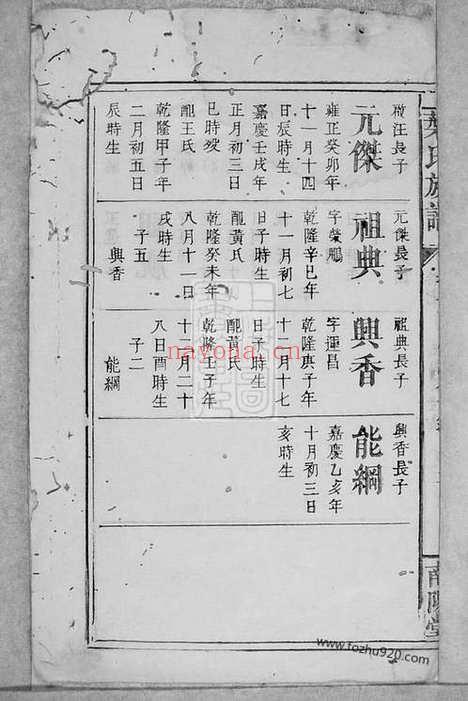 元傑長子
祖典長子
興香長子
長子
元傑
雍正癸卯年
十一月十四
日辰時生
嘉慶壬戌年
正月初三日
巳時歿
配王氏
乾隆甲子年
二月初五日
辰時生
祖典
字榮鵬
乾隆辛巳年
十一月初七
日子時生
配黃氏
乾隆癸未年
八月十一日
戌時生
子五
興香
興香
字運昌
乾隆庚子年
十一月十七
日子時生
配黃氏
乾隆壬子年
十二月二十
八日酉時生
子二
能綱
能綱
嘉慶乙亥年
十月初三日
亥時生
氏族譜
南陽堂
nayona.cn
www.fozhu920.com